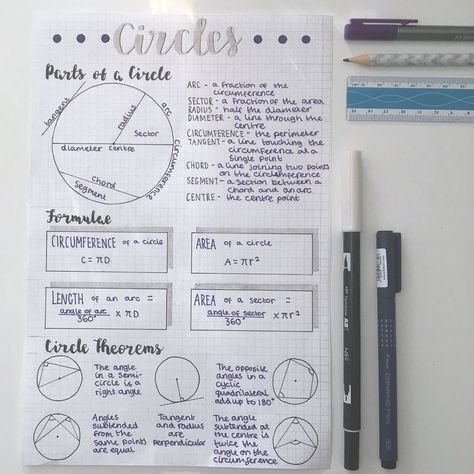 Circles
Parts of a Circle
tangent
radius
arc
Sector
diameter centre
circumference
chord
Segment
ARC - a fraction of the
circumference
SECTOR - a fraction of the area
RADIUS - half the diameter
DIAMETER - a line through the
centre
CIRCUMFERENCE - the perimeter
TANGENT - a line touching the
circumference at a
Single point
CHORD - a line joining two points
on the circumference
SEGMENT - a section between a
chord and an arc
CENTRE - the centre point
Formulae
CIRCUMFERENCE of a circle
C = πD
AREA of a circle
A = πr²
LENGTH of an arc =
angle of arc
360° × πD
AREA of a sector =
angle of sector
360° × πr²
Circle Theorems
The angle
in a semi-
circle is a
right angle
The opposite
angles in a
cyclic
quadrilateral
add up to 180°
Angles
subtended
from the
same points
are equal
Tangent
and radius
are
perpendicular
The angle
subtended at
the centre is
twice the
angle on the
circumference